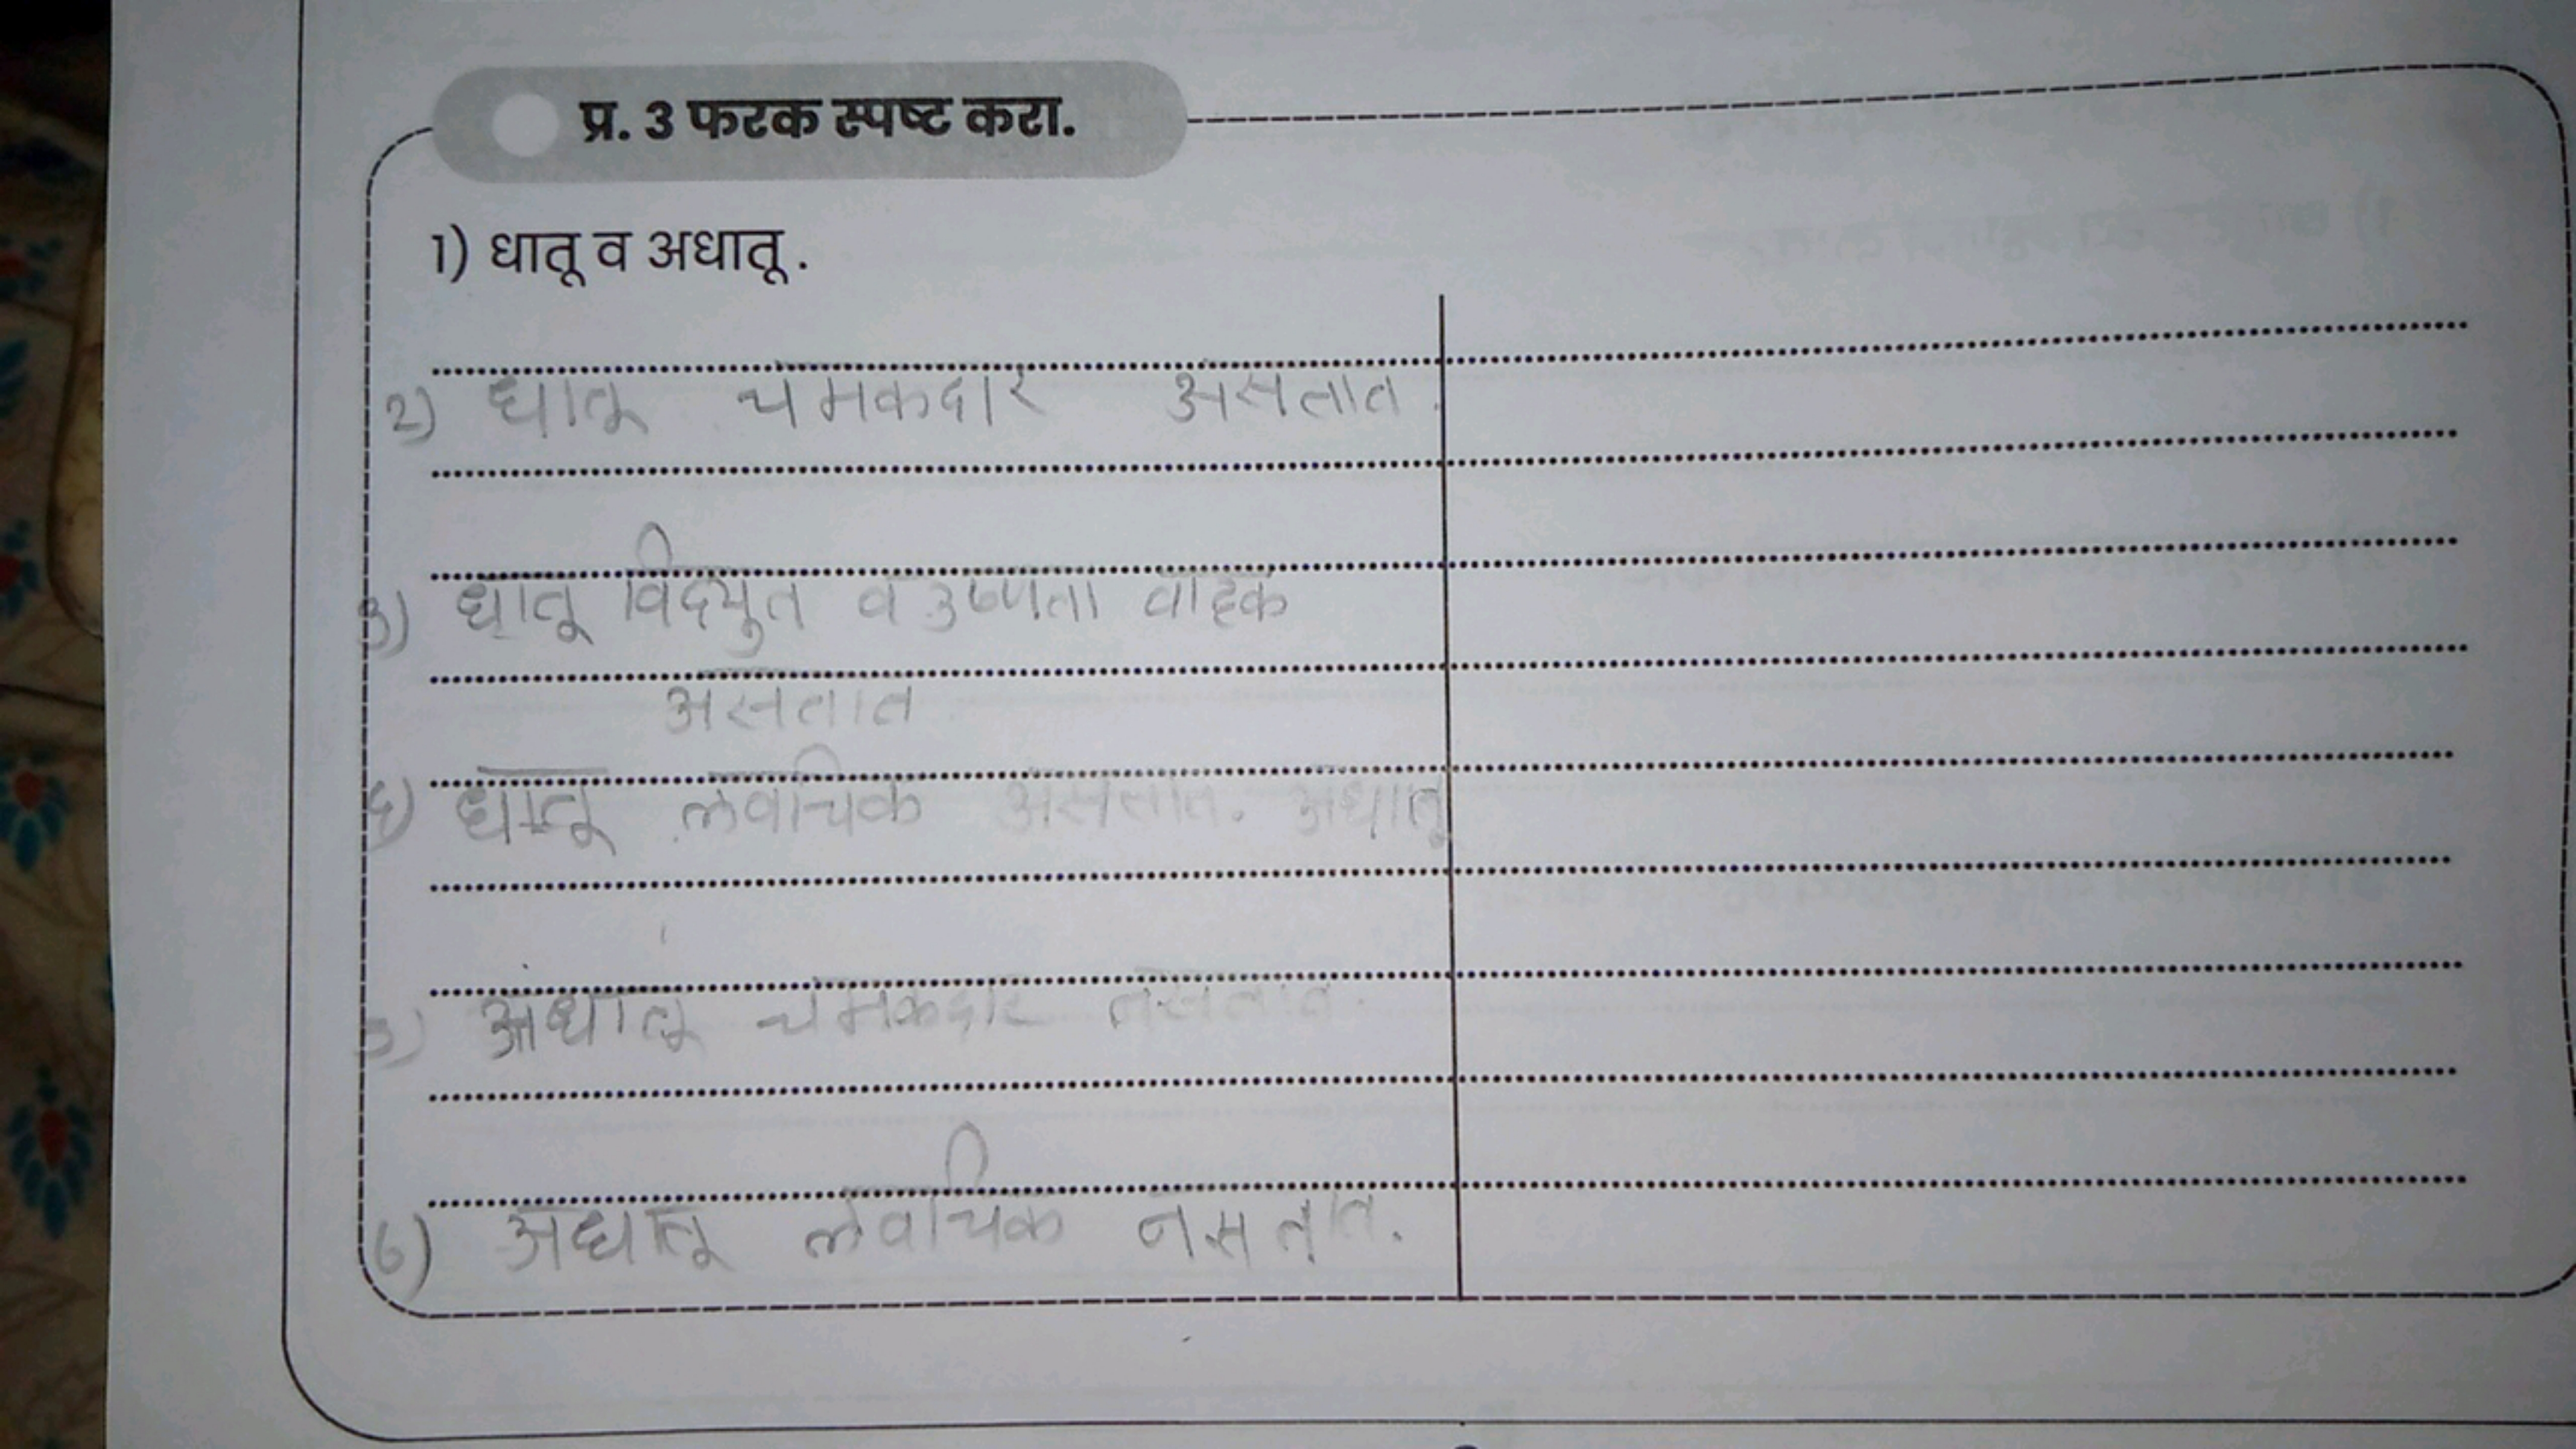 प्र. 3 फरक स्पष्ट करा.
1) धातू व अधातू .
2) धातू चमकदार असतात.
3) धातू विदयुत व उष्णता वाहक
असतात
4) धातू लवचिक असतात. अधातू
5) अधातू चमकदार नसतात.
6) अधातू लवचिक नसतात.